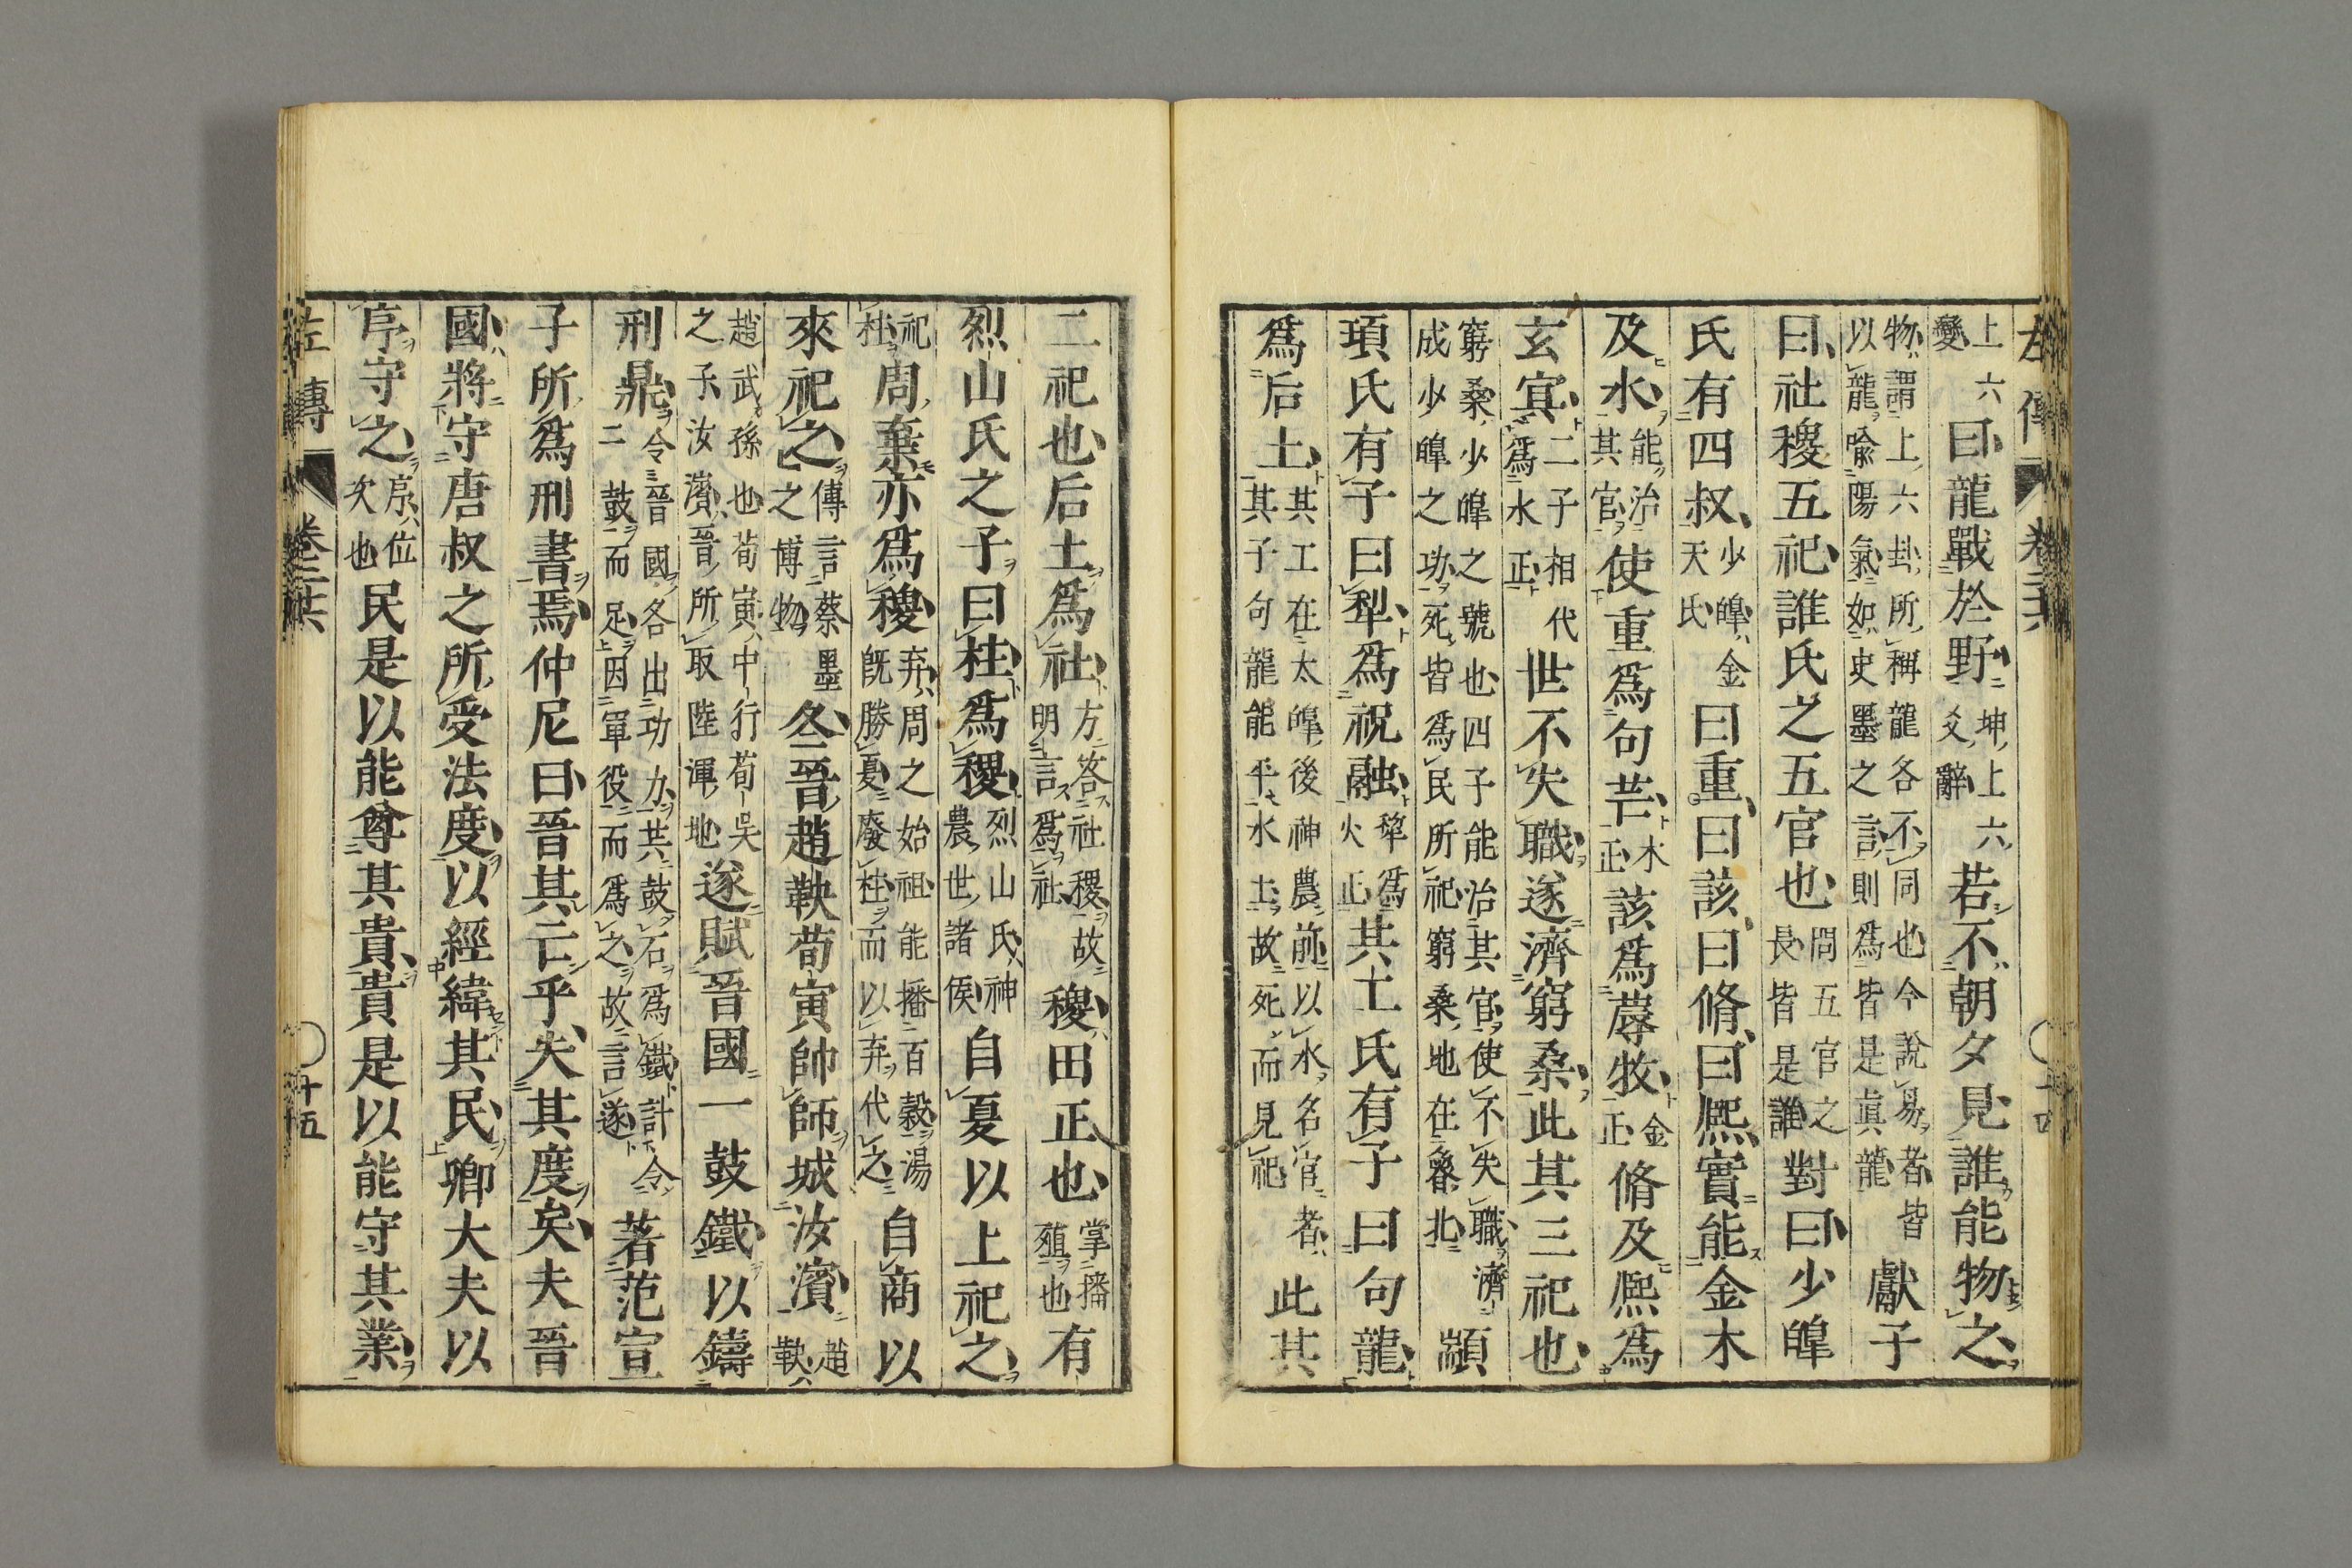 上六變曰龍戰於野坤上六爻辭若不朝夕見誰能物之
物謂上六卦所稱龍各不同也今說易者皆以龍喩陽氣如史墨之言則爲皆是眞龍獻子
曰社稷五祀誰氏之五官也問五官之長皆是誰對曰少皥
氏有四叔少皥金天氏曰重曰該曰脩曰熙實能金木
及水能治其官使重爲句芒木正該爲蓐收金正脩及熙爲
玄冥二子相代爲水正世不失職遂濟窮桑此其三祀也
窮桑少皥之號也四子能治其官使不失職濟成少皥之功死皆爲民所祀窮桑地在魯北顓
頊氏有子曰犂爲祝融犂爲火正共工氏有子曰句龍
爲后土共工在太皥後神農前以水名官者其子句龍能平水土故死而見祀此其
二祀也后土爲社方答社稷故明言爲社稷田正也掌播殖也有
烈山氏之子曰柱爲稷烈山氏神農世諸侯自夏以上祀之
祀柱周棄亦爲稷弃周之始祖能播百穀湯既勝夏廢柱而以弃代之自商以
來祀之傳言蔡墨之博物冬晉趙鞅荀寅帥師城汝濱趙鞅
趙武孫也荀寅中行荀吳之子汝濱晉所取陸渾地遂賦晉國一鼓鐵以鑄
刑鼎令晉國各出功力共鼓石爲鐵計令一鼓而足因軍役而爲之故言遂著范宣
子所爲刑書焉仲尼曰晉其亡乎失其度矣夫晉
國將守唐叔之所受法度以經緯其民卿大夫以
序守之序位次也民是以能尊其貴貴是以能守其業
左傳 卷二十六 十五